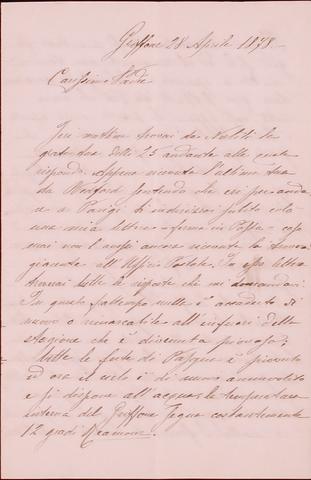 Griffone 28 Aprile 1878
Carissimo Padre
Ieri mattina trovai da Nobili la
grat. tua delli 25 andante alla quale
rispondo. Appena ricevuta l'ultima tua
da Wexford sentendo che eri per anda
re a Parigi ti indirizzai subito colà
una mia lettera ferma in Posta - caso
mai non l'avessi ancora ricevuta la
all'Uffizio Postale. In essa lettera
troverai tutte le risposte che mi domandavi.
In questo frattempo nulla è accaduto di
nuovo o rimarcabile all'infuori della
stagione che è divenuta piovosa;
tutte le feste di Pasqua è piovuto
ed ora il cielo è di nuovo annuvolato
e si dispone all'acqua, la temperatura
interna del Griffone segna costantemente
12 gradi Reamur.